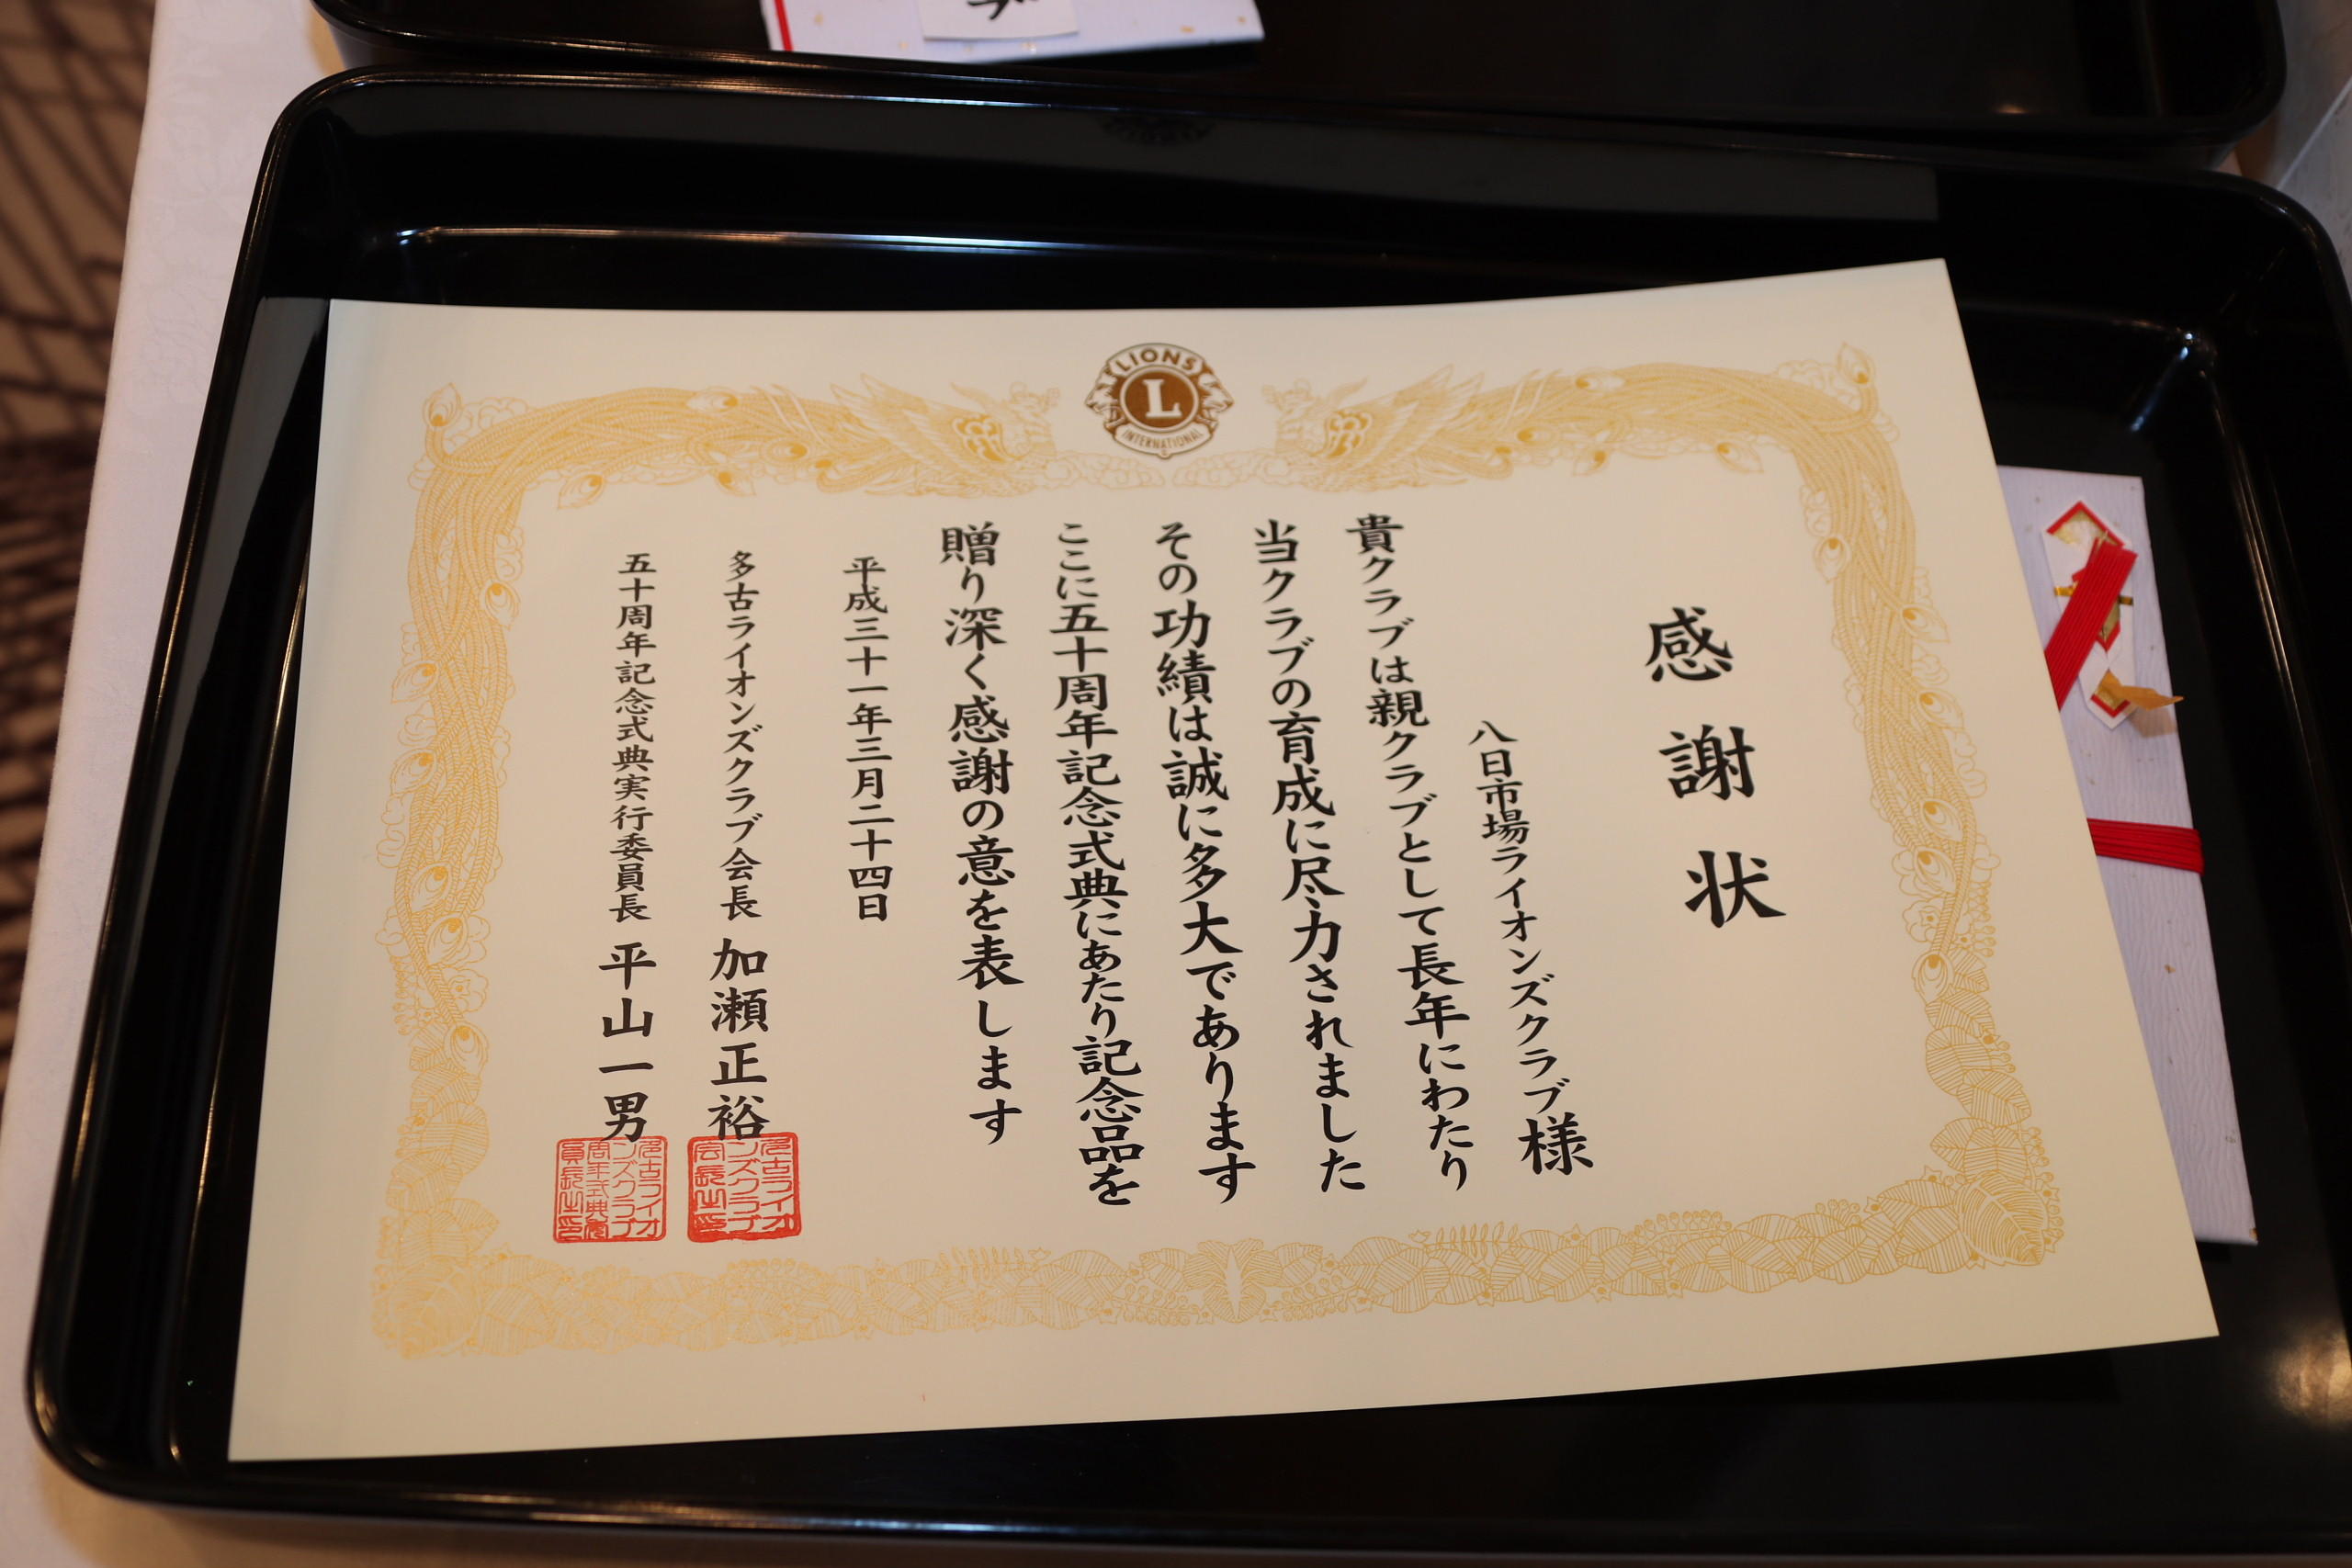 感謝状
八日市場ライオンズクラブ様
貴クラブは親クラブとして長年にわたり
当クラブの育成に尽力されました
その功績は誠に多大であります
ここに五十周年記念式典にあたり記念品を
贈り深く感謝の意を表します
平成三十一年三月二十四日
多古ライオンズクラブ会長 加瀬正裕
五十周年記念式典実行委員長 平山一男
LIONS
L
INTERNATIONAL
多古ライオ
ンズクラブ
会長之印
多古ライオ
ンズクラブ